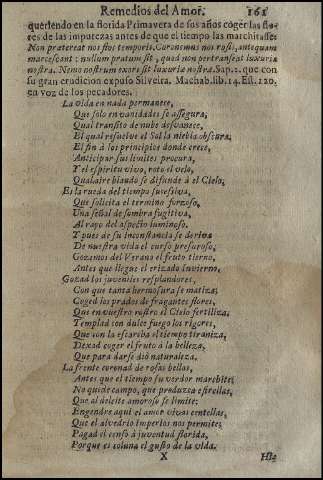 Remedios del Amor. 161
queriendo en la florida Primavera de sus años coger las flo-
res de las impurezas antes de que el tiempo las marchitasse:
Non pratereat nos flos temporis. Coronemus nos rosis, antequam
marcescant: nullum pratum sit, quod non pertranseat luxuria
nostra. Nemo nostrum exors sit luxuria nostra. Sap. 2. que con
su gran erudicion expuso Silveira. Machab. lib. 14. Est. 120.
en voz de los pecadores.
La vida en nada permanece,
Que solo en vanidades se assegura,
Qual transito de nube desvanece,
El qual resuelve el Sol la niebla obscura.
El fin à los principios donde crece,
Anticipar sus limites procura,
Y el espiritu vivo, roto el velo,
Qual aire blando se difunde à el Cielo.
Es la rueda del tiempo sucessiva,
Que solicita el termino forzoso,
Una señal de sombra fugitiva,
Al rayo del aspecto luminoso.
Y pues de su inconstancia se deriva
De nuestra vida el curso presuroso,
Gozemos del Verano el fruto tierno,
Antes que llegue el erizado invierno,
Gozad los juveniles resplandores,
Con que tanta hermosura se matiza;
Coged los prados de fragantes flores,
Que en vuestro rostro el Cielo fertiliza:
Templad con dulce fuego los rigores,
Que con la escarcha el tiempo tiraniza,
Dexad coger el fruto à la belleza,
Que para darse diò naturaleza.
La frente coronad de rosas bellas,
Antes que el tiempo su verdor marchite;
No quede campo, que produzca estrellas,
Que al deleite amoroso se limite:
Engendre aqui el amor vivas centellas,
Que el alvedrio Imperios nos permite;
Pagad el censo à juventud florida,
Porque es coluna el gusto de la vida.
X